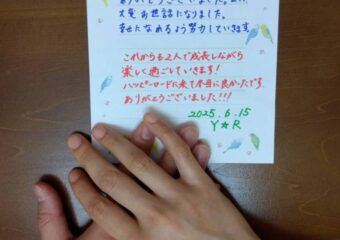 ありがとうございました。
大変お世話になりました。
幸せになれるよう努力していきます
これからも2人で成長しながら
楽しく過ごしていきます!
ハッピーロードに来て本当に良かったです
ありがとうございました!!!
2025.6.15
Y★R